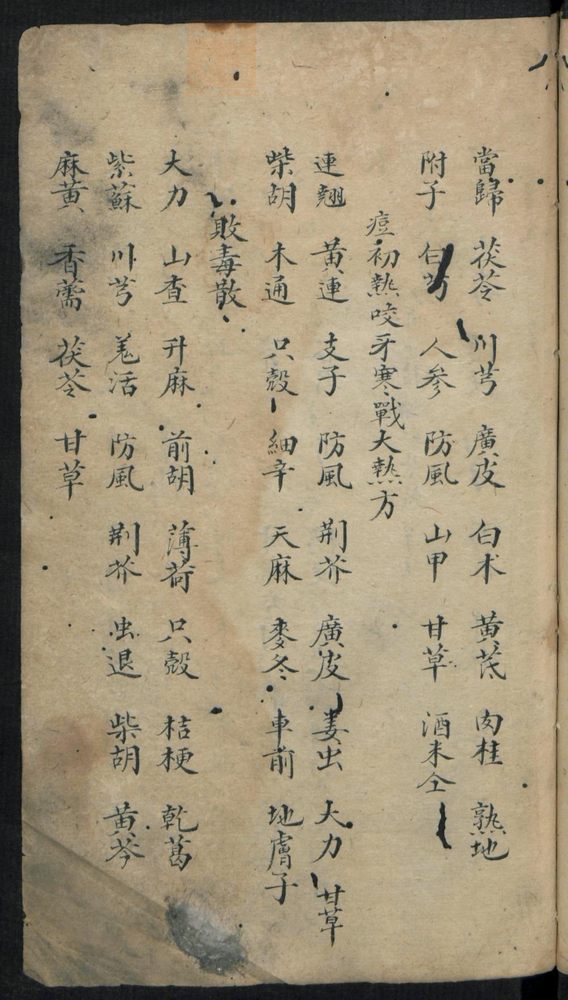 當歸 茯苓 川芎 廣皮 白术 黄芪 肉桂 熟地
附子 白芍 人參 防風 山甲 甘草 酒末仝
痘初熱咬牙寒戰大熱方
連翹 黄連 支子 防風 荆芥 廣皮 姜虫 大力 甘草
柴胡 木通 只殼 細辛 天麻 麥冬 車前 地膚子
敗毒散
大力 山查 升麻 前胡 薄荷 只殼 桔梗 乾葛
紫蘇 川芎 羗活 防風 荆芥 虫退 柴胡 黄芩
麻黄 香薷 茯苓 甘草